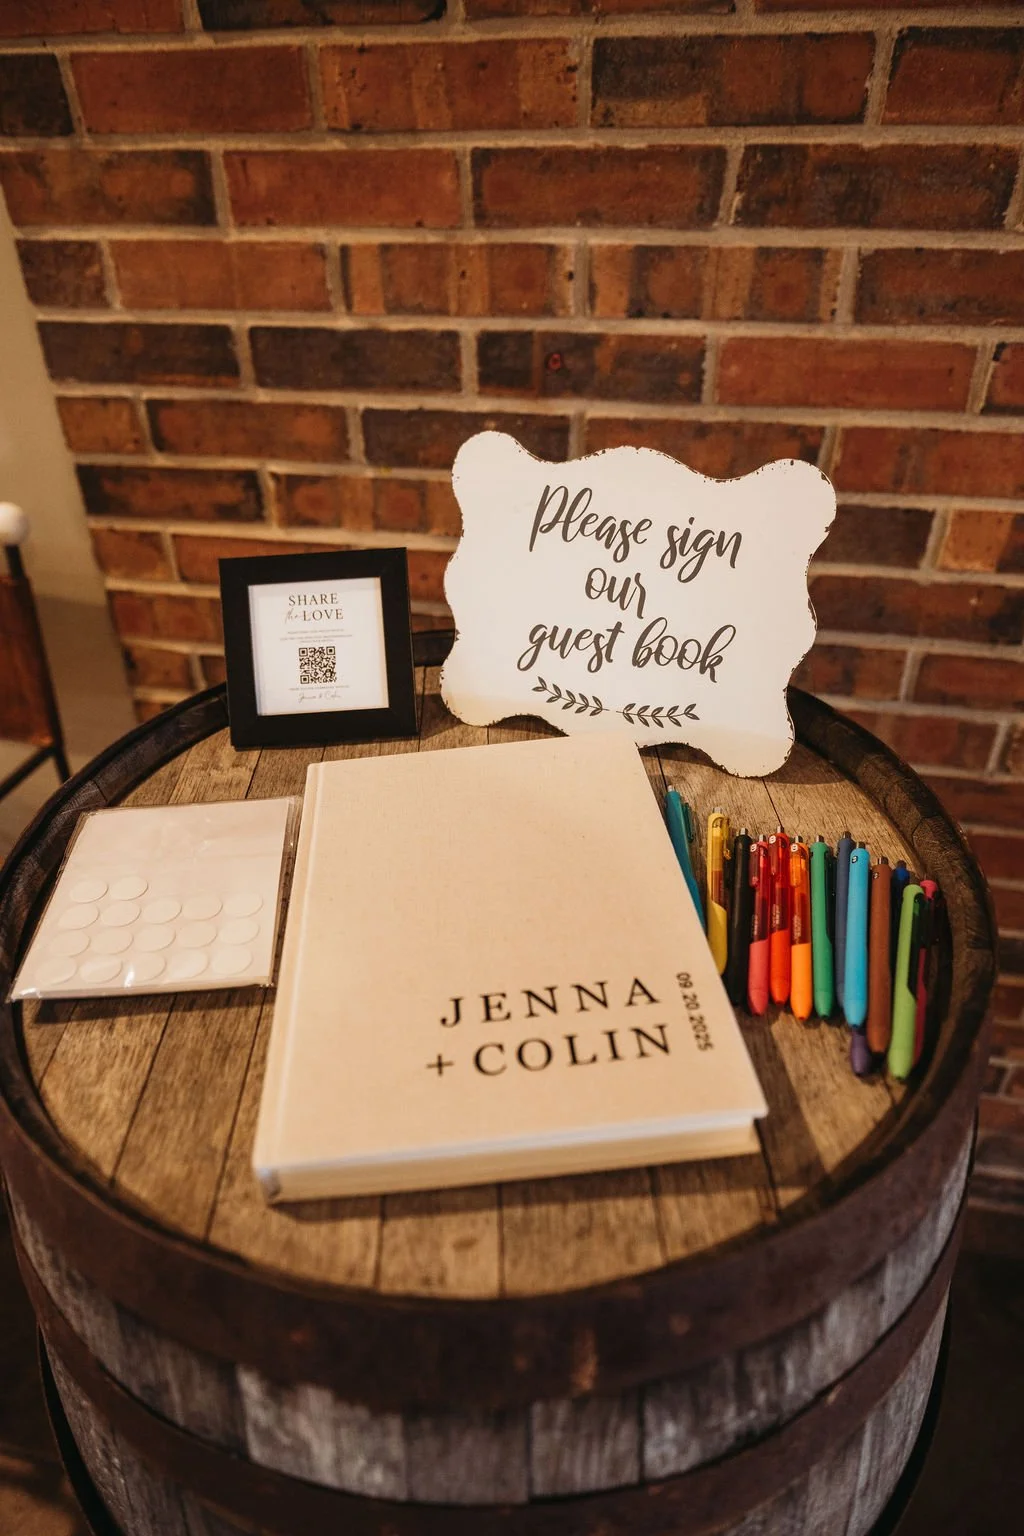 SHARE
the LOVE
Jenna & Colin
Please sign
our
guest book
JENNA
+ COLIN
09.20.2025